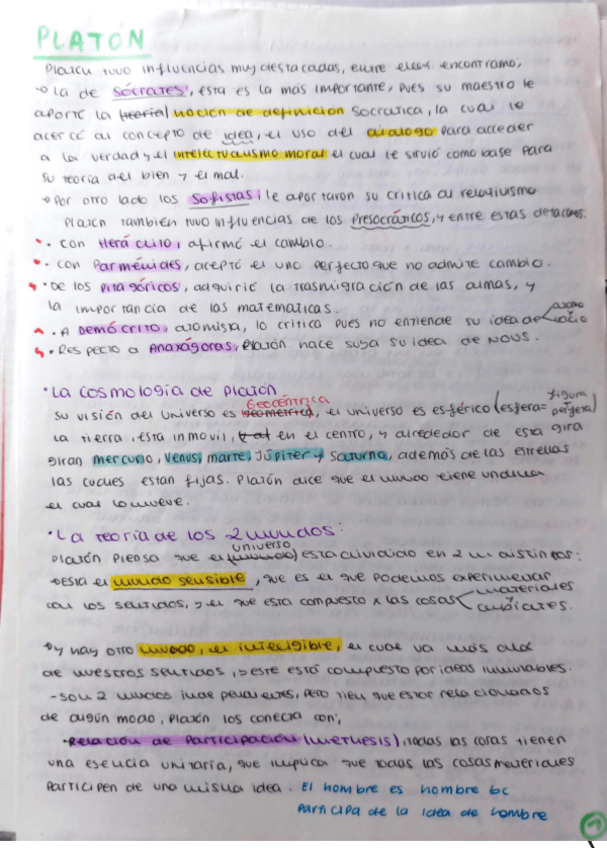 PLATÓN
Platón tuvo influencias muy destacadas, entre ellas encontramo;
→ la de Sócrates, esta es la más importante, pues su maestro le
aportó la teoría/noción de definición socrática, la cual le
acercó al concepto de idea, el uso del dialogo para acceder
a la verdad y el intelectualismo moral el cual le sirvió como base para
su teoría del bien y el mal.
→ Por otro lado los Sofistas; le aportaron su crítica al relativismo
Platón también tuvo influencias de los Presocráticos, y entre estas destacones:
• Con Heráclito, afirmó el cambio.
• Con Parménides, aceptó el uno perfecto que no admite cambio.
• De los pitagóricos, adquirió la trasmigración de las almas, y
la importancia de las matemáticas.
• A Demócrito, atomista, lo critica pues no entiende su idea de átomo vacío
• Respecto a Anaxágoras, Platón hace suya su idea de NOUS.
• La cosmología de Platón
Geocéntrica
Su visión del universo es geometrica, el universo es esférico (esfera = figura perfecta)
La tierra, esta inmovil, en el centro, y alrededor de esta gira
giran mercurio, venus, marte, Júpiter y Saturno, además de las estrellas
las cuales estan fijas. Platón dice que el mundo tiene un
el cual lo mueve.
• La teoría de los 2 mundos:
universo
Platón piensa que el (mundo) esta dividido en 2 m distintos:
→ Esta el mundo sensible, que es el que podemos experimentar
con los sentidos, y el que esta compuesto x las cosas materiales
cambiantes.
→ y hay otro mundo, el inteligible, el cual va más allá
de nuestros sentidos, y este está compuesto por ideas inmutables.
- Son 2 mundos independientes, pero tien que estar relacionados
de algún modo, Platón los conecta con;
• Relación de participación (methesis), todas las cosas tienen
una esencia unitaria, que implica que todas las cosas materiales
participen de una misma idea. El hombre es hombre bc
participa de la idea de hombre
1